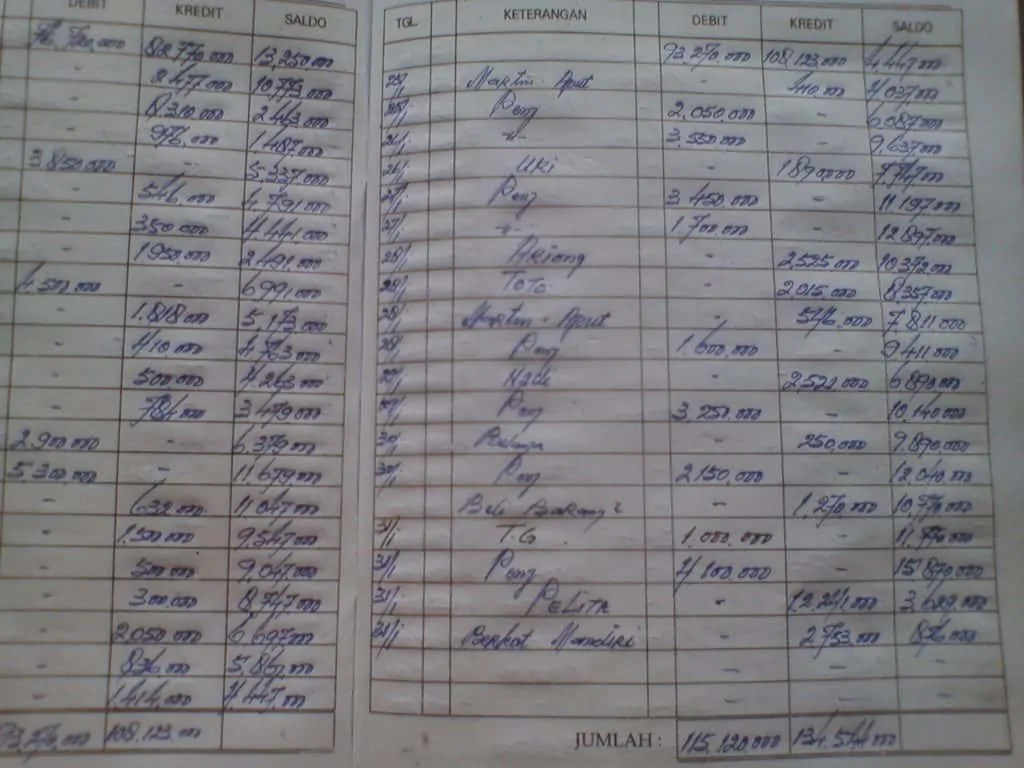 DEBIT KREDIT SALDO
82.770.000 13,250.000
8.477.000 10.773.000
8.310.000 2.463.000
976.000 1.487.000
3.850.000 - 5.337.000
- 546.000 4.791.000
- 350.000 4.441.000
- 1.950.000 2.491.000
4.500.000 - 6.991.000
- 1.818.000 5.173.000
- 410.000 4.763.000
- 500.000 4.263.000
- 784.000 3.479.000
2.900.000 - 6.379.000
5.300.000 - 11.679.000
- 632.000 11.047.000
- 1.500.000 9.547.000
- 500.000 9.047.000
- 300.000 8.747.000
- 2.050.000 6.697.000
- 836.000 5.861.000
- 1.414.000 4.447.000
93.270.000 108.123.000
TGL. KETERANGAN DEBIT KREDIT SALDO
93.270.000 108.123.000 4.447.000
Martin - Aput - 410.000 4.037.000
Pong 2,050.000 - 6.087.000
-"- 3.550.000 - 9.637.000
26/1 UKi - 1890.000 7.747.000
27/1 Pong 3.450.000 - 11.197.000
27/1 -"- 1.700.000 - 12.897.000
28/1 AKiong - 2,525.000 10.372.000
28/1 TOTO - 2.015.000 8.357.000
28/1 Martin - Aput - 546.000 7.811.000
Pong 1.600.000 - 9.411.000
- 2.522.000 6.890.000
Pong 3.250.000 - 10.140.000
30/1 - 250.000 9.890.000
30/1 Pong 2150.000 - 12.040.000
Beli Barang2 - 1.270.000 10.770.000
31/1 T.G 1.000.000 - 11.770.000
31/1 Pong 4.100.000 - 15.870.000
31/1 PELITA - 12.241.000 3.629.000
31/1 Berkat Mandiri - 2.753.000 876.000
- - -
- - -
JUMLAH : 115,120.000 134.544.000